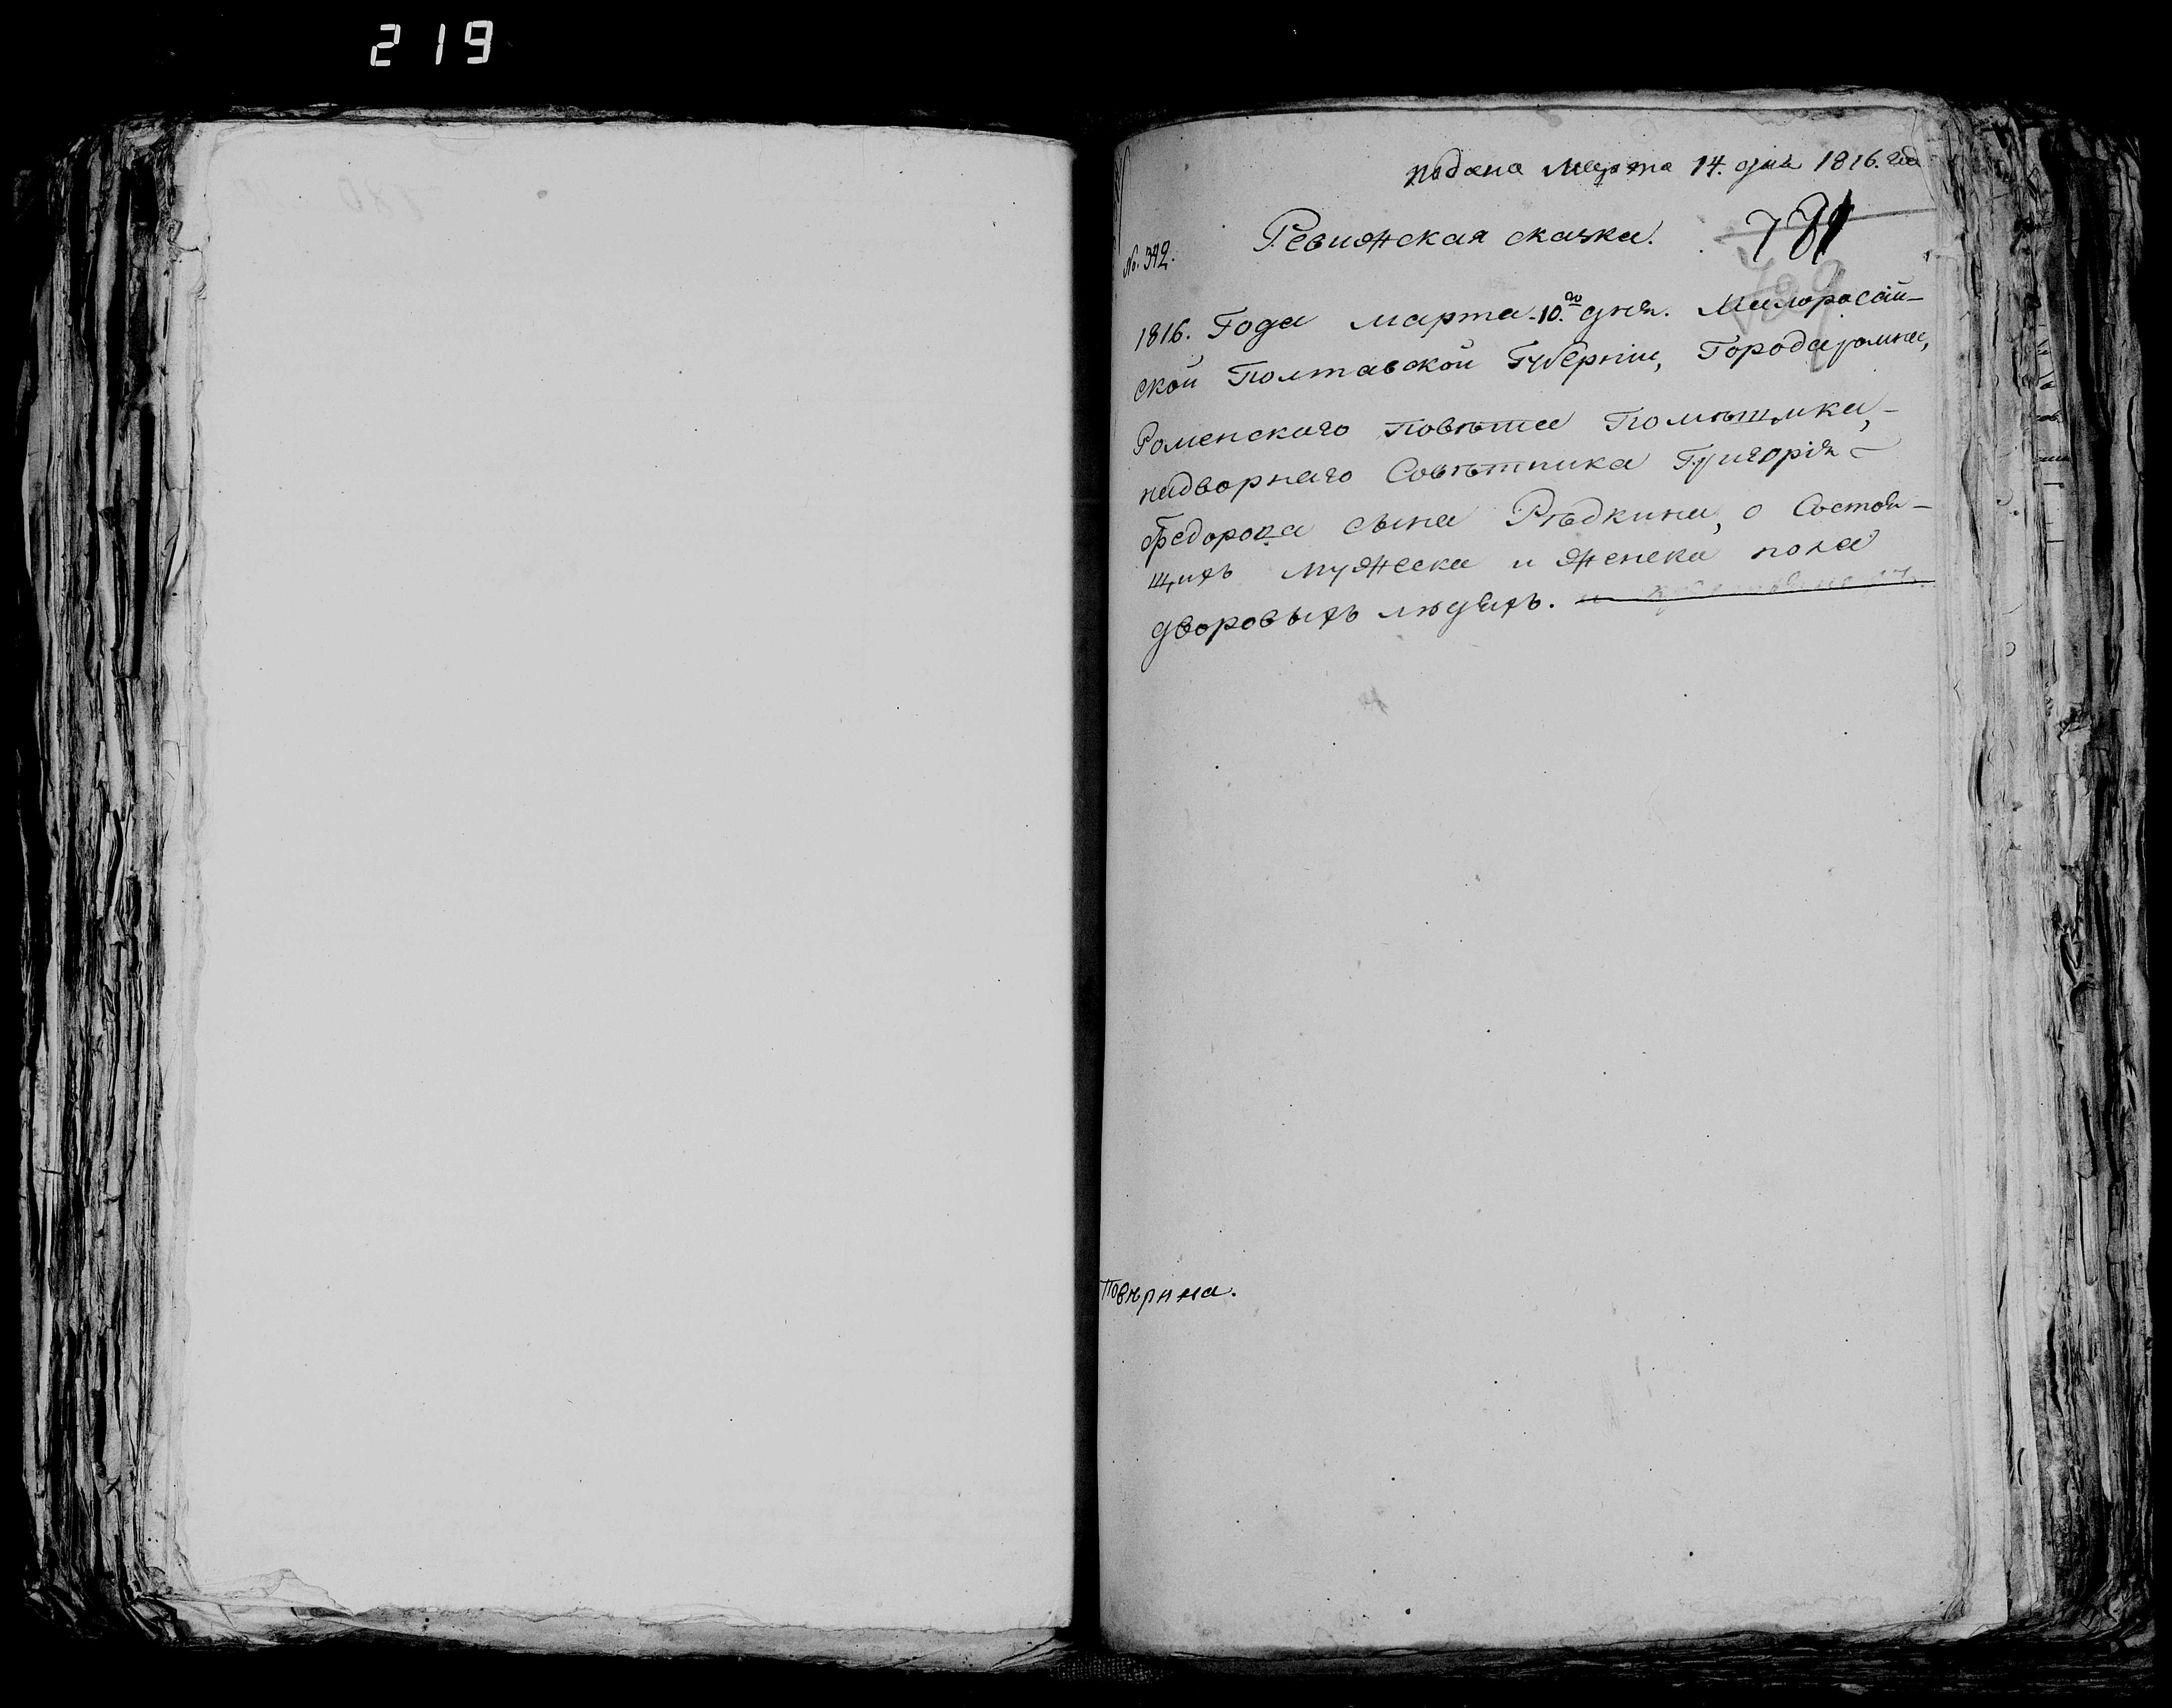 219
подана Марта 14. дня 1816. год
Ревижская сказка.
781
789
№. 342.
1816. Года марта 10.го дня. Малоросій-
ской Полтавской Губерніи, Города Ромна,
Роменского повѣта Помѣщика,
надворнаго Совѣтника Григорія
Федорова сына Рѣдкина, о Состоя-
щихъ мужеска и женска пола
дворовыхъ людяхъ.
Повѣрина.